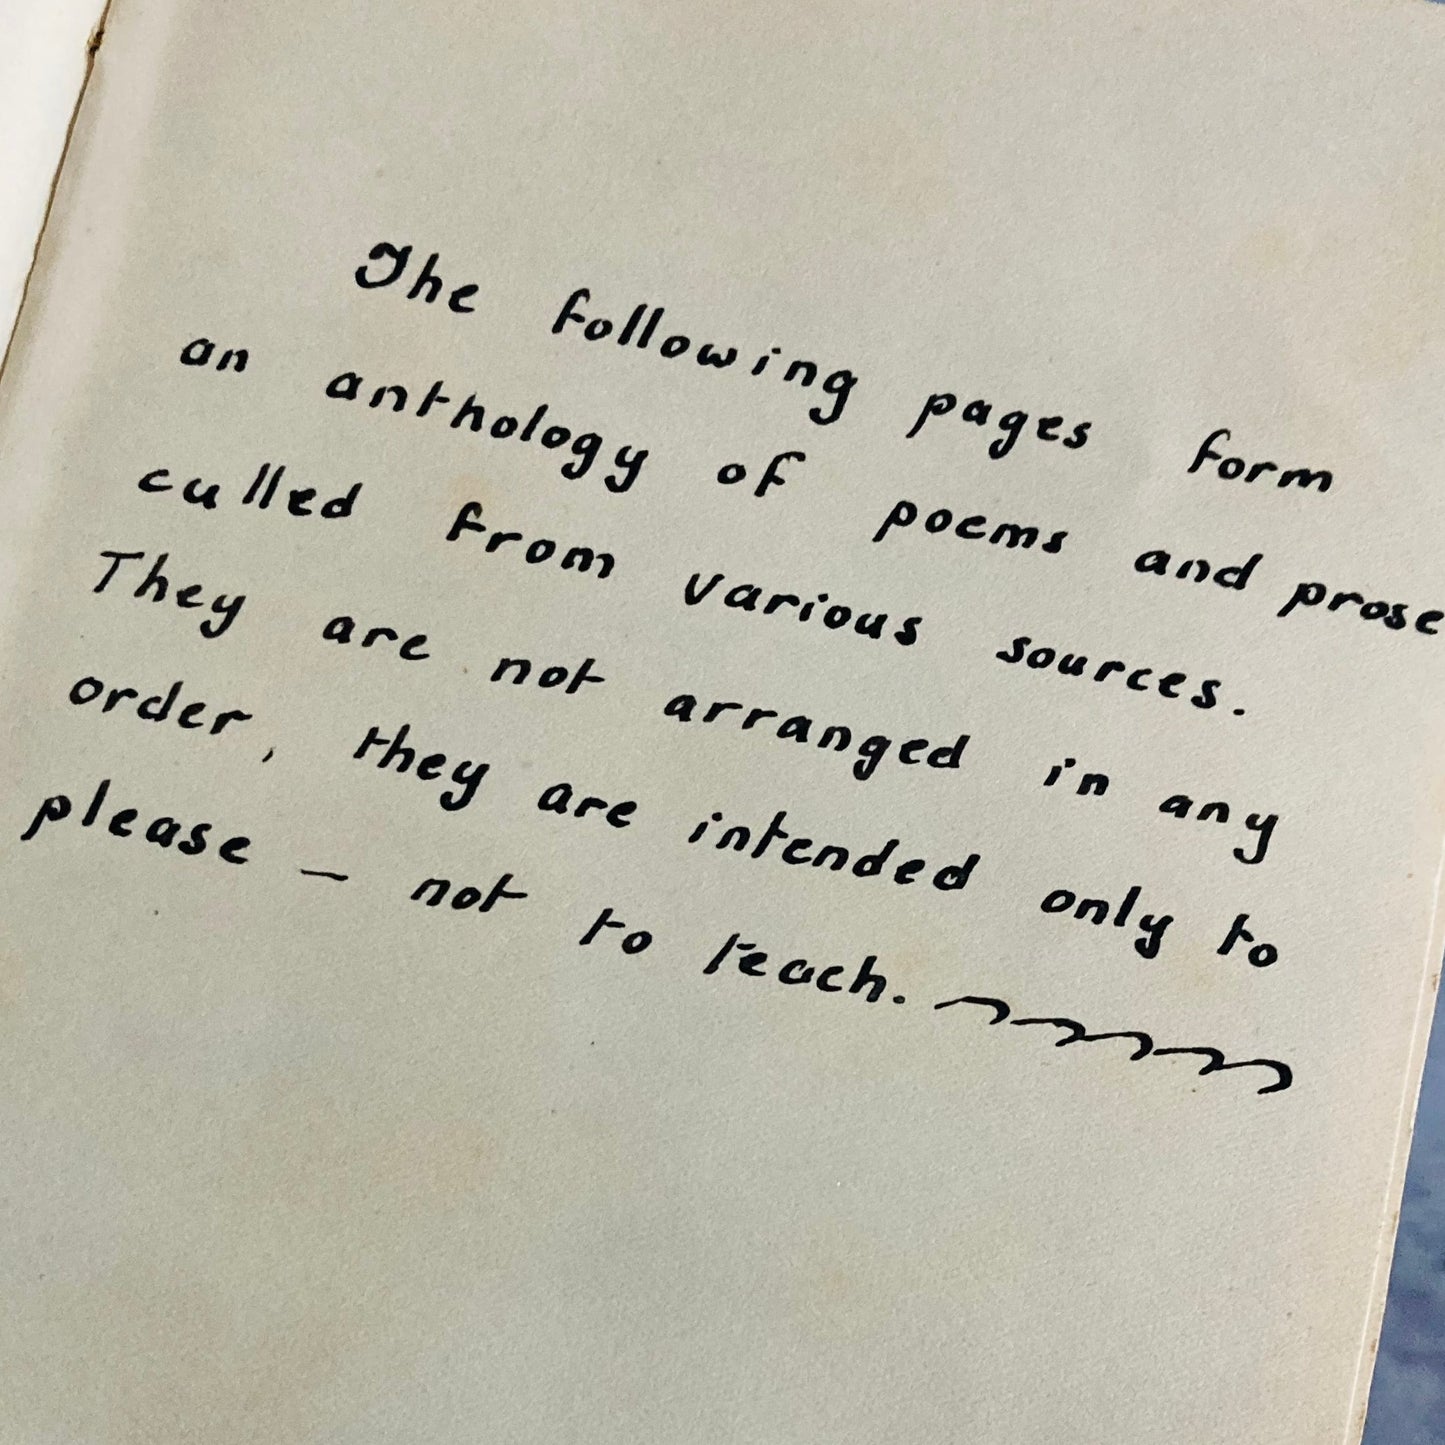 The following pages form
an anthology of poems and prose
culled from various sources.
They are not arranged in any
order, they are intended only to
please – not to teach.